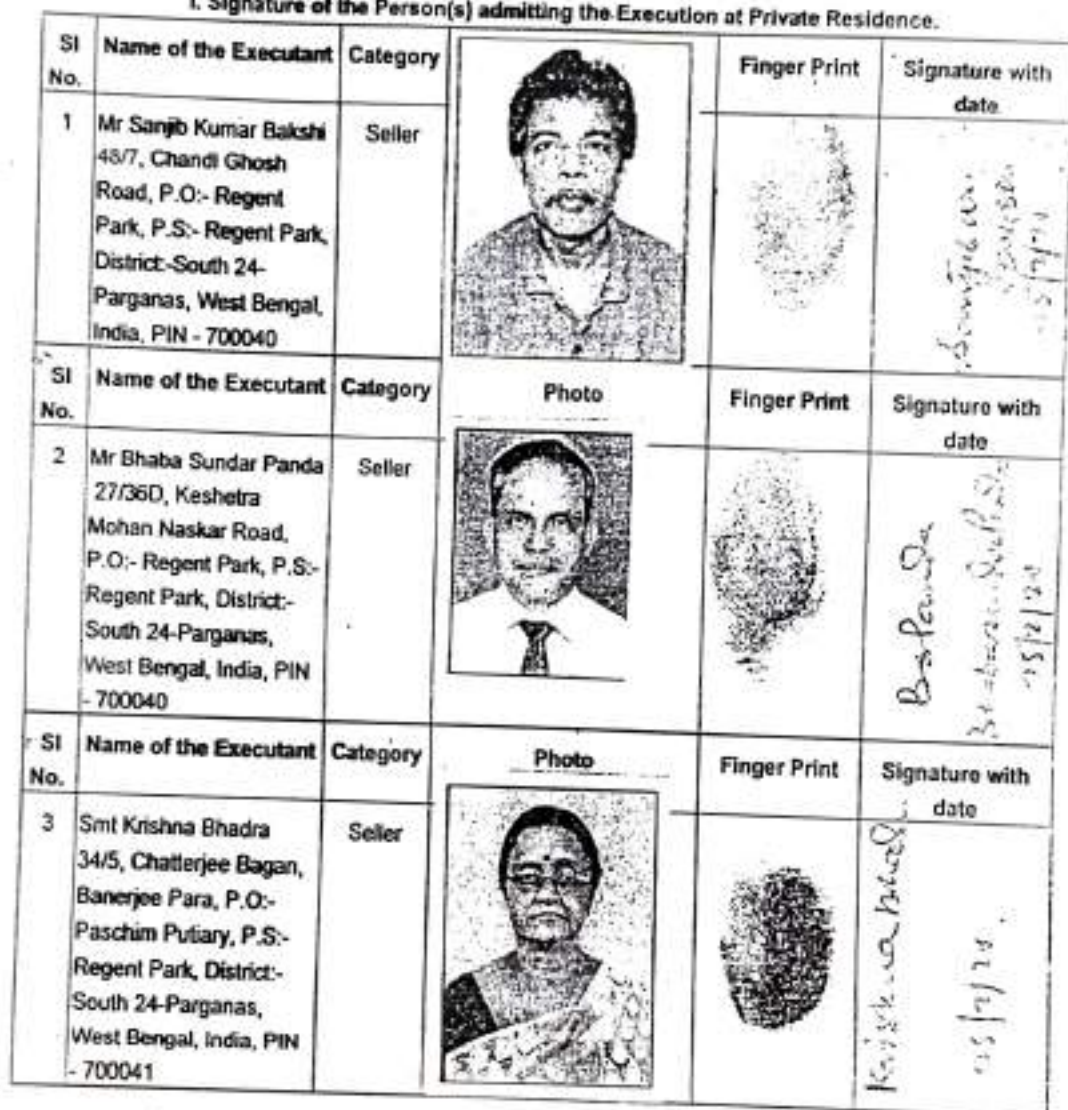 I. Signature of the Person(s) admitting the Execution at Private Residence.
Sl No. Name of the Executant Category Finger Print Signature with date
1 Mr Sanjib Kumar Bakshi Seller
48/7, Chandi Ghosh
Road, P.O:- Regent
Park, P.S:- Regent Park,
District:-South 24-
Parganas, West Bengal,
India, PIN - 700040
Sl No. Name of the Executant Category Photo Finger Print Signature with date
2 Mr Bhaba Sundar Panda Seller
27/36D, Keshetra
Mohan Naskar Road,
P.O:- Regent Park, P.S:-
Regent Park, District:-
South 24-Parganas,
West Bengal, India, PIN
- 700040
BsPanda
Sl No. Name of the Executant Category Photo Finger Print Signature with date
3 Smt Krishna Bhadra Seller
34/5, Chatterjee Bagan,
Banerjee Para, P.O:-
Paschim Putiary, P.S:-
Regent Park, District:-
South 24-Parganas,
West Bengal, India, PIN
- 700041
Krishna Bhadra